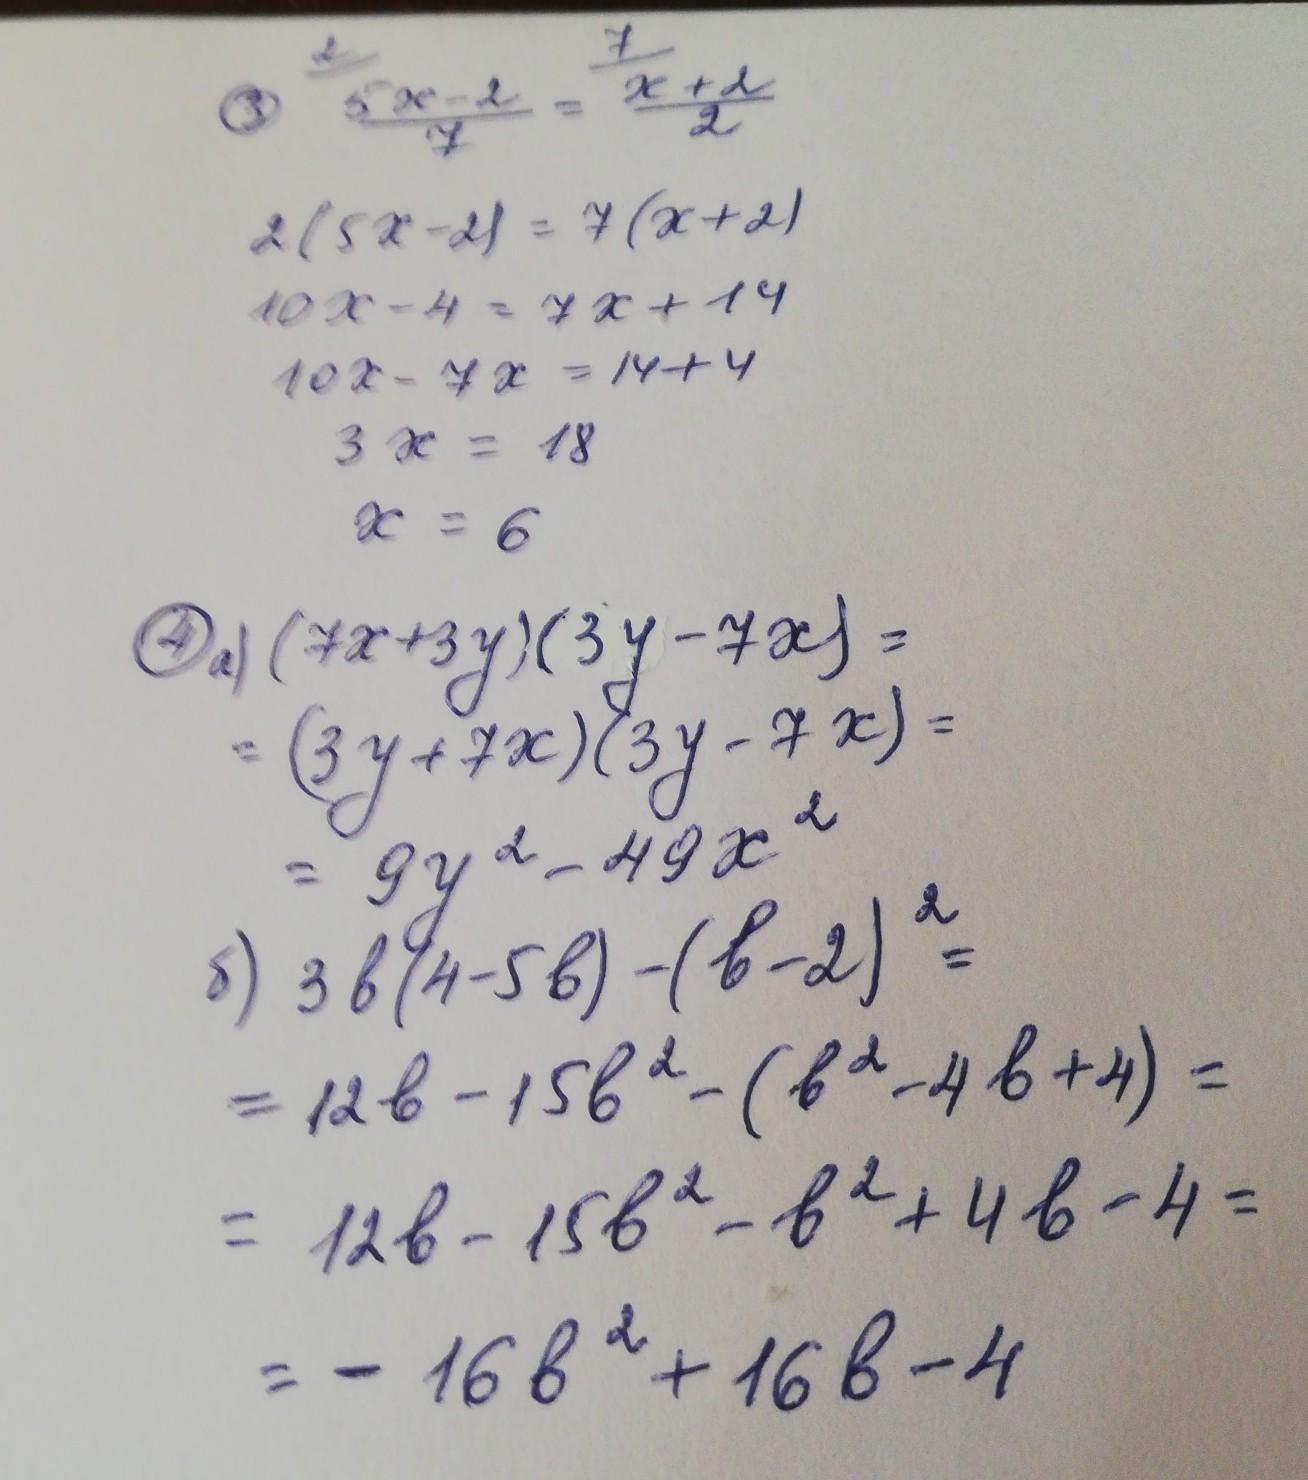 2 7
③ 5x-2/7 = x+2/2
2(5x-2) = 7(x+2)
10x-4 = 7x+14
10x-7x = 14+4
3x = 18
x = 6
④ а) (7x+3y)(3y-7x) =
= (3y+7x)(3y-7x) =
= 9y² - 49x²
б) 3b(4-5b) - (b-2)² =
= 12b - 15b² - (b² - 4b + 4) =
= 12b - 15b² - b² + 4b - 4 =
= - 16b² + 16b - 4